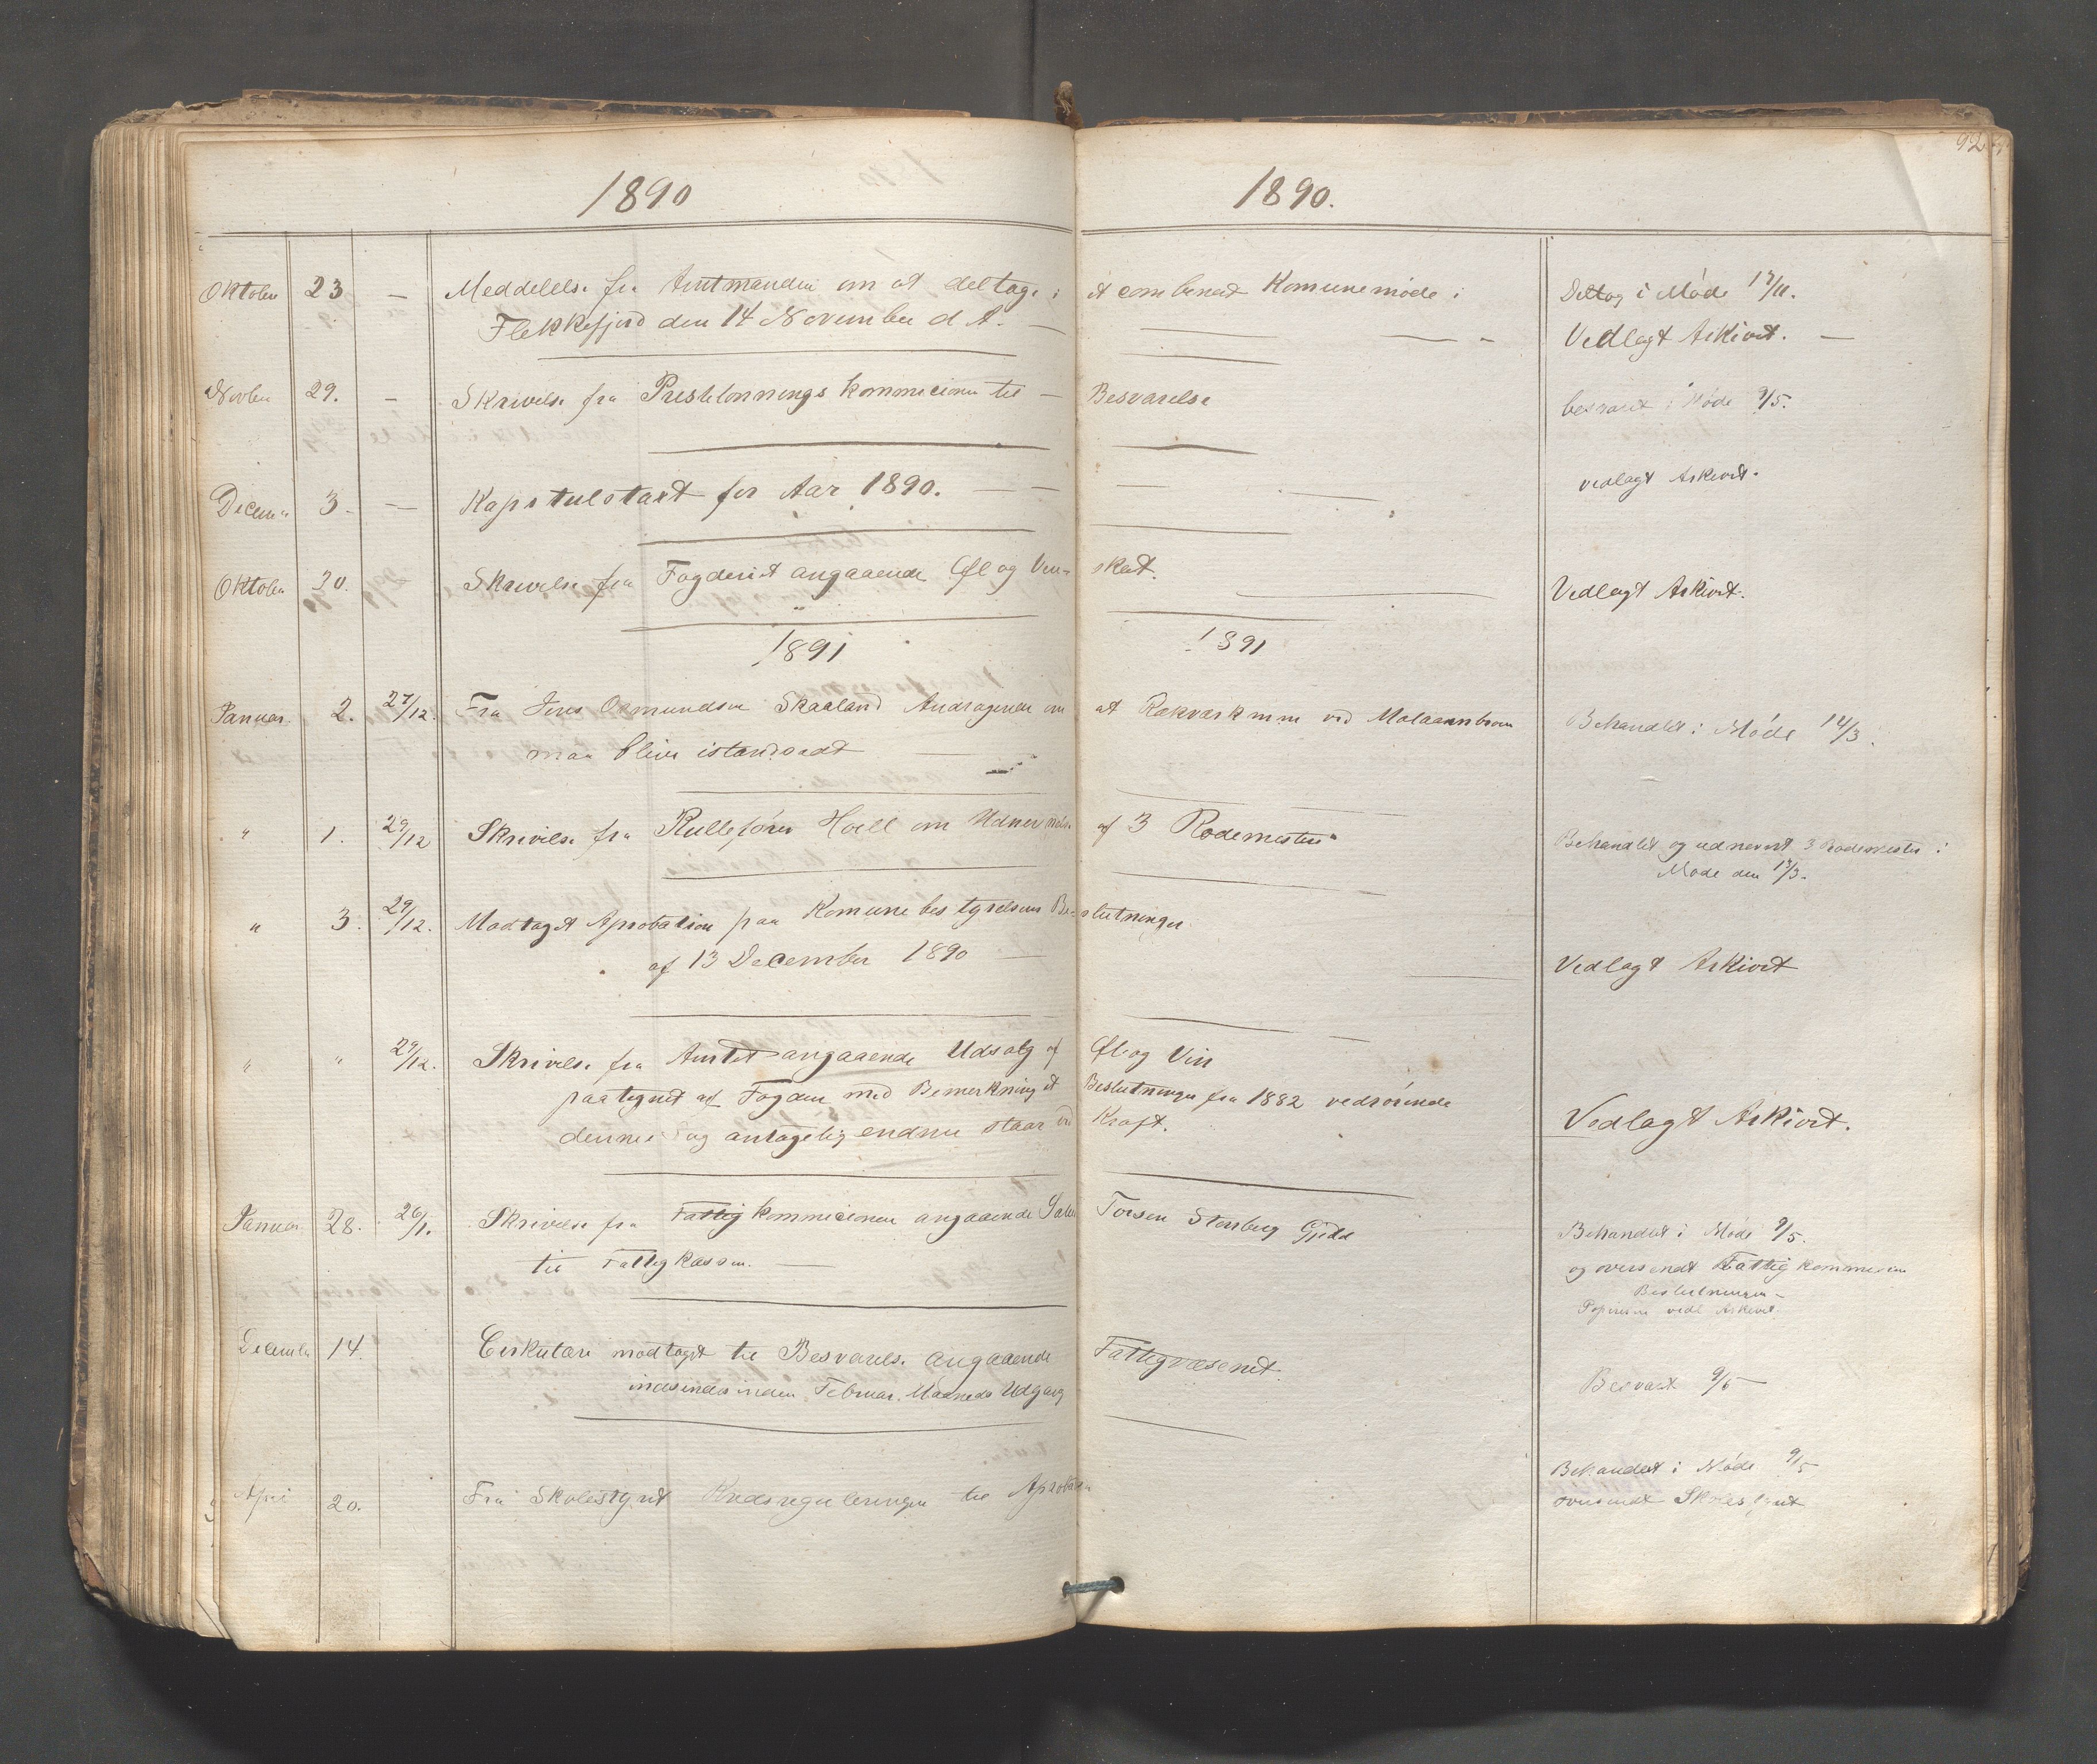 92
1890 1890.
Oktober 23 — Meddelelse fra Amtmanden om at deltage i et combineret Komunemøde i Deltog i Møde 17/11.
Flekkefjord den 14 November d. A. — Vedlagt Arkivet. —
Novber 29. — Skrivelse fra Prestelønnings kommicionen til — Besvarelse besvaret i Møde 9/5.
Decem 3 — Kapitulstaxt for Aar 1890. — vedlagt Arkivet.
Oktober 30. Skrivelse fra Fogderiet angaaende Øl og Vin- skat. Vedlagt Arkivet.
1891 1891
Januar 2. 27/12. Fra Jens Osmundsen Skaaland Andragende om at Rækværkerne ved Malaaenbroen Behandlet i Møde 14/3.
maa bliver istandsadt —
" 1. 29/12 Skrivelse fra Rullefører Hoell om Udnevnelse af 3 Rodemestere Behandlet og udnevnt 3 Rodemester i
Møde den 14/3.
" 3. 29/12. Modtaget Aprobation paa Komunebestyrelsens Be- slutninger
af 13 December 1890 — Vedlagt Arkivet
" " 29/12. Skrivelse fra Amtet angaaende Udsalg af Øl og Vin
paategnet af Fogden med Bemerkning at Beslutninger fra 1882 vedrørende
denne Sag antagelig endnu staar ved Kraft. Vedlagt Arkivet.
Januar 28. 26/1. Skrivelse fra Fattigkommicionen angaaende Torsen Stensberg Gjeld Behandlet i Møde 9/5.
til Fattigkassen. — og oversendt Fattigkommicion
Beslutningen —
Papirerne vedl Arkivet.
December 14. Cirkulære modtaget til Besvarelse angaaende Fattigvæsenet.
indsendes inden Februar Maaneds Udgang Besvaret 9/5 —
Behandlet i Møde 9/5
April 20. Fra Skolestyret Kredsreguleringen til Aprobation oversendt Skolestyret